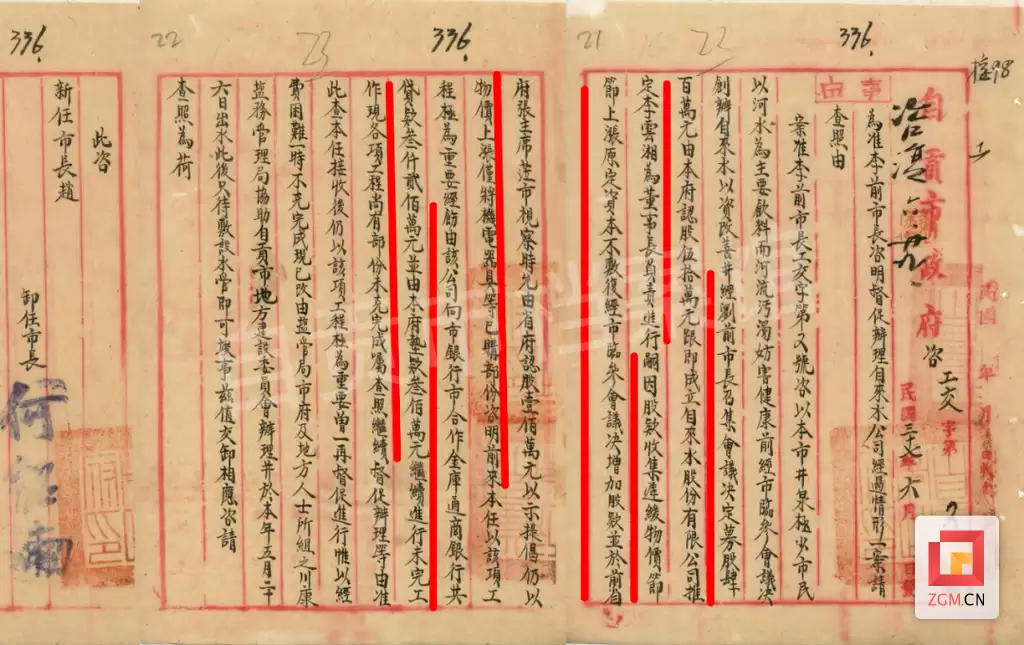 336.
336.
336.
22
23
21
22
自貢市政府 咨 工交 字第
民國三十七年六月
事由
為准李前市長咨明督促辦理自來水公司經過情形一案請
查照由
案准李前市長工交字第 號咨以本市井泉極少市民
以河水為主要飲料而河流污濁妨害健康前經市臨參會議決
創辦自來水以資改善并經劉前市長召集會議決定募股肆
百萬元由本府認股伍拾萬元跟即成立自來水股份有限公司推
定李雲湘為董事長負責進行嗣因股款收集遲緩物價節
節上漲原定資本不敷復經市臨參會議決增加股款並於前省
府張主席蒞市視察時允由省府認股壹佰萬元以示提倡仍以
物價上漲僅將機電器具等已購部份咨明前來本任以該項工
程極為重要經飭由該公司向市銀行市合作金庫通商銀行共
貸款叁仟貳佰萬元並由本府墊款叁佰萬元繼續進行未完工
作現各項工程尚有部份未克完成囑查照繼續督促辦理等由准
此查本任接收後仍以該項工程極為重要曾一再督促進行惟以經
費困難一時不克完成現已改由鹽管局市府及地方人士所組之川康
鹽務管理局協助自貢市地方建設委員會辦理并於本年五月二十
六日出水此後只待敷設水管即可 市茲值交卸相應咨請
查照為荷
此咨
新任市長趙
卸任市長
ZGM.CN